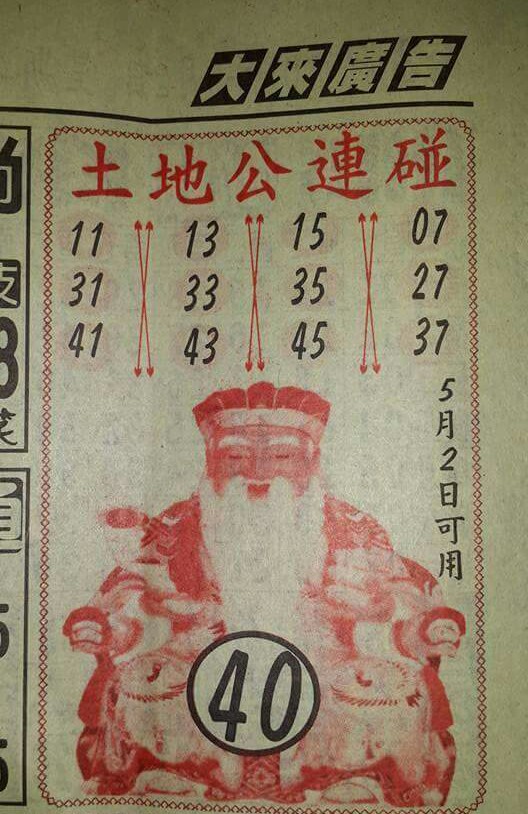 大來廣告
土地公連碰
11 13 15 07
31 33 35 27
41 43 45 37
5月2日可用
40